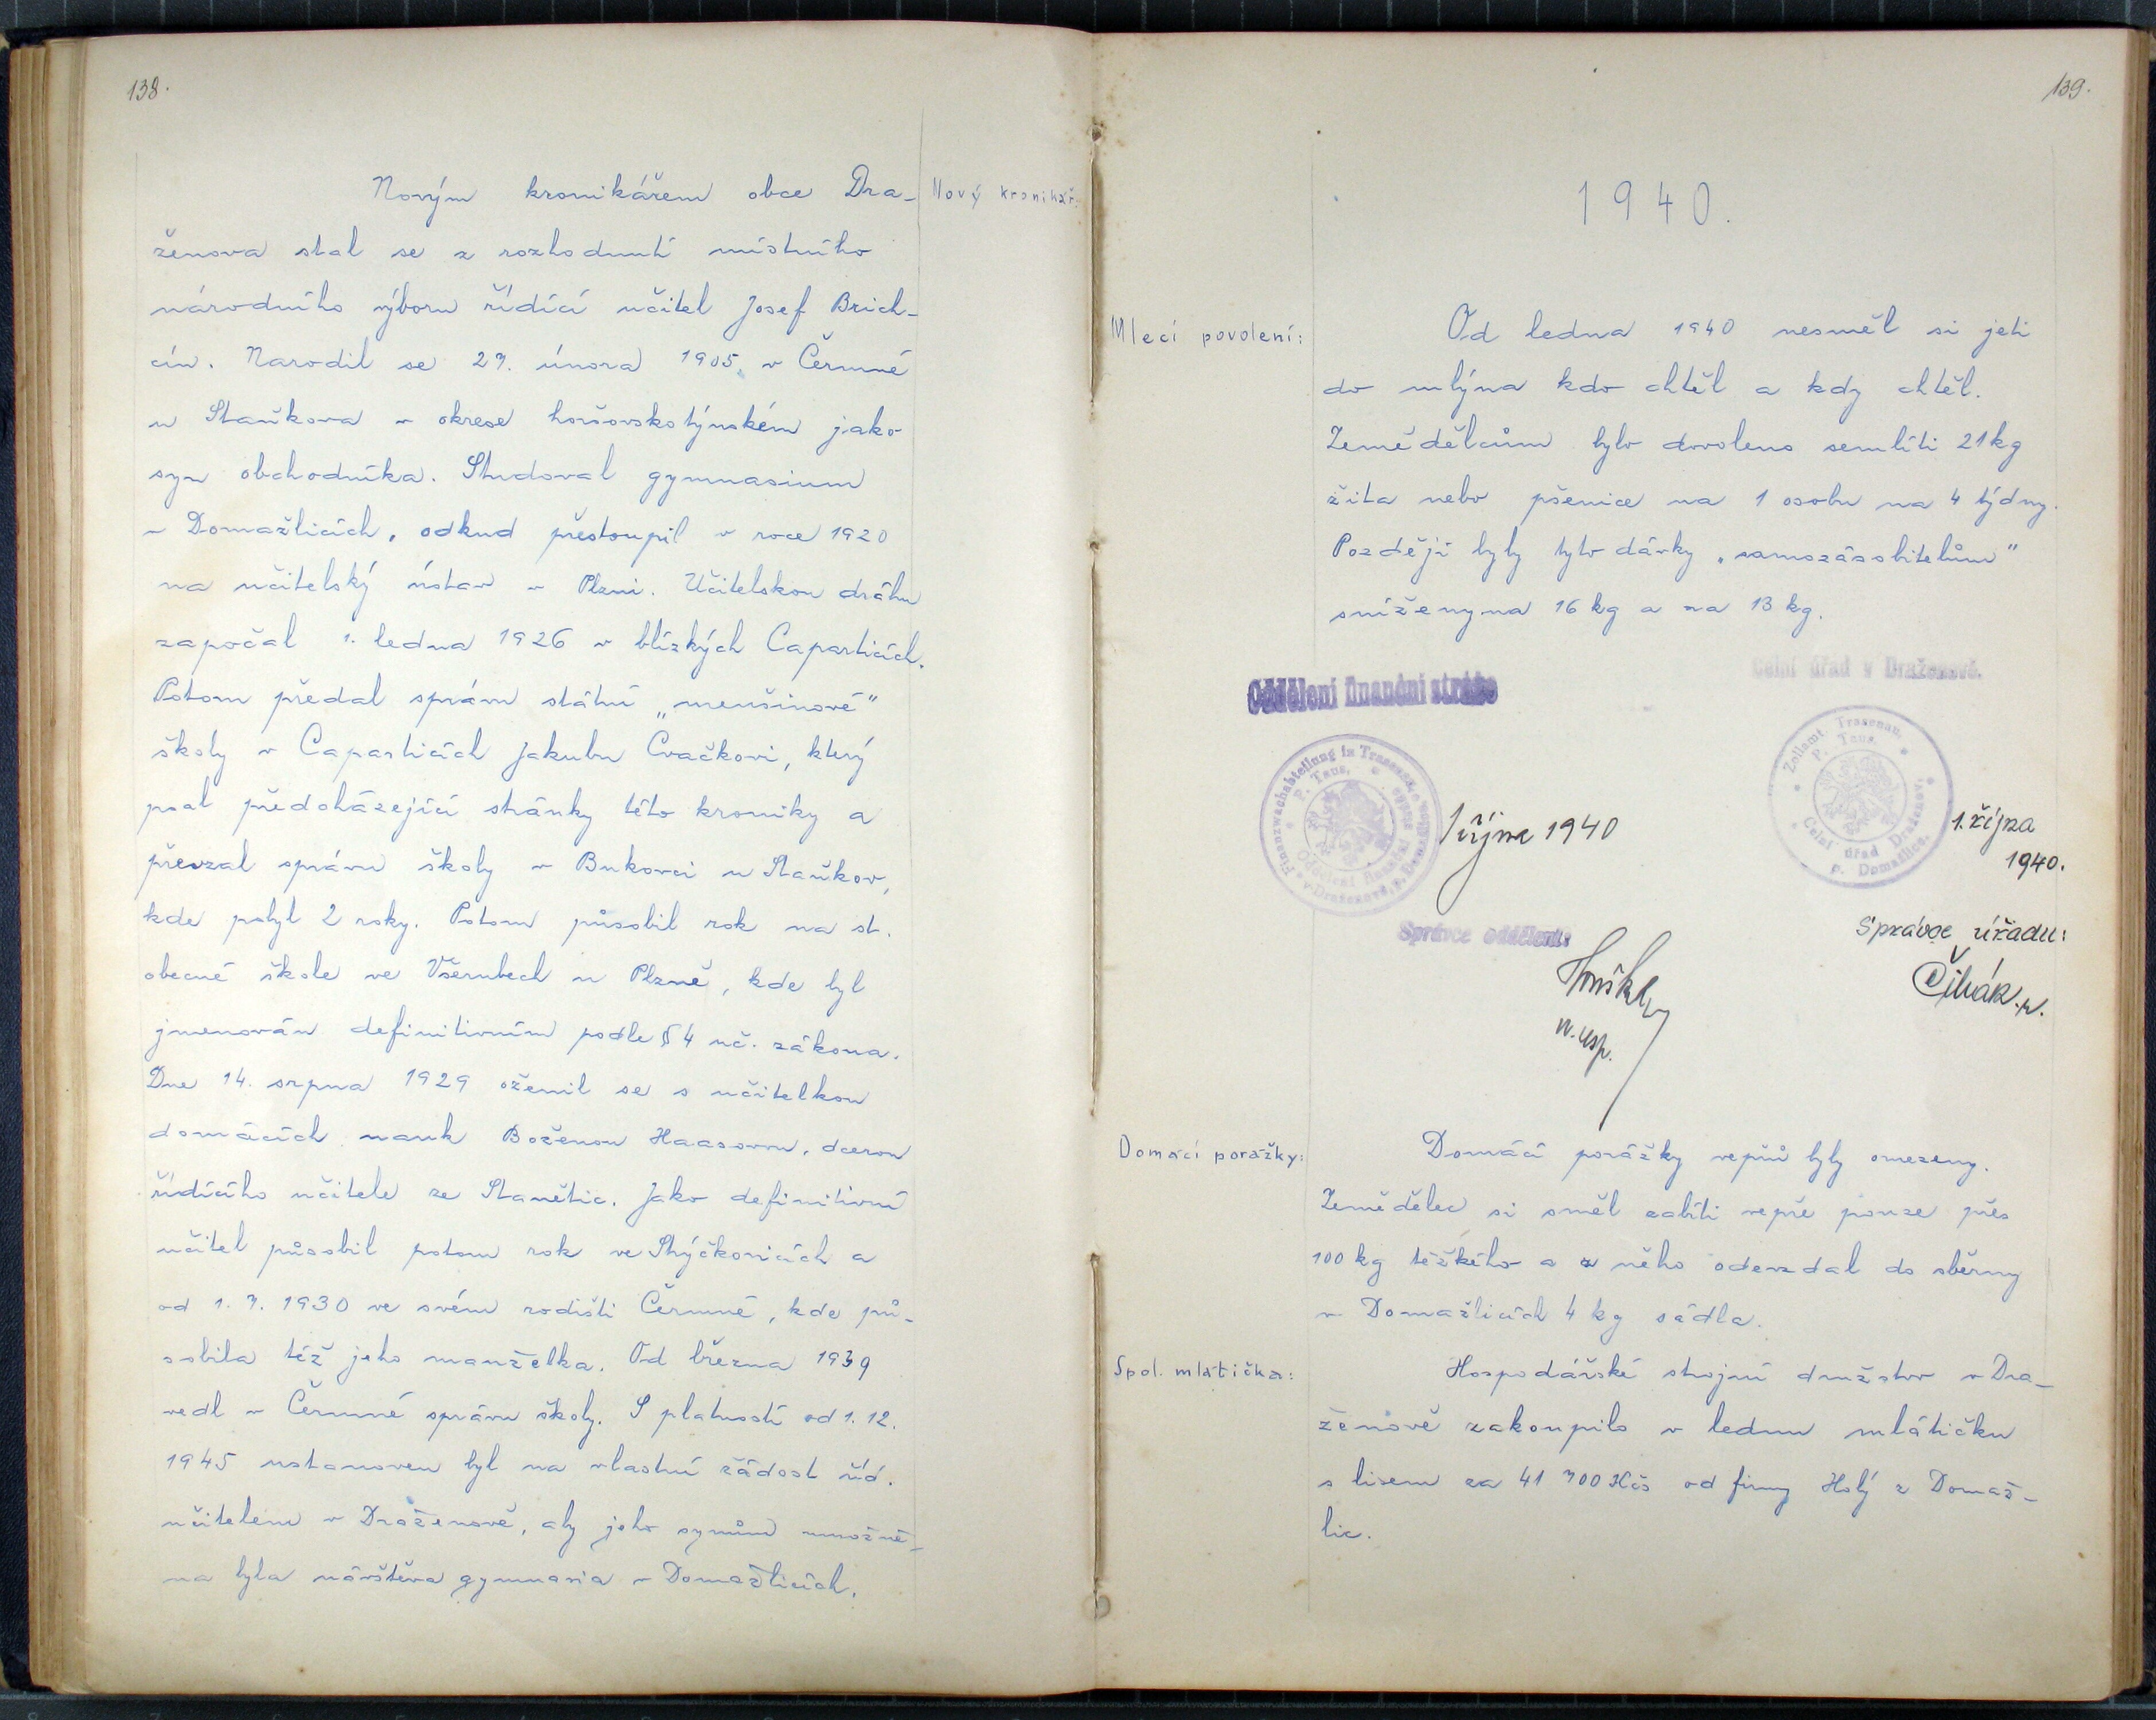 138.
Novým kronikářem obce Dra-
Nový kronikář:
ženova stal se z rozhodnutí místního
národního výboru řídící učitel Josef Brich-
cín. Narodil se 27. února 1905 v Černné
u Staňkova v okrese horšovskotýnském jako
syn obchodníka. Studoval gymnasium
v Domažlicích, odkud přestoupil v roce 1920
na učitelský ústav v Plzni. Učitelskou dráhu
započal 1. ledna 1926 v blízkých Caparticích.
Potom předal správu státní „menšinové"
školy v Caparticích Jakubu Cvačkovi, který
psal předcházející stránky této kroniky a
převzal správu školy v Bukovci u Staňkov,
kde pobyl 2 roky. Potom působil rok na st.
obecné škole ve Všerubech u Plzně, kde byl
jmenován definitivním podle § 4 uč. zákona.
Dne 14. srpna 1929 oženil se s učitelkou
domácích nauk Boženou Haasovou, dcerou
řídícího učitele ze Stanětic. Jako definitivní
učitel působil potom rok ve Stýčkovicích a
od 1. 7. 1930 ve svém rodišti Černné, kde pů-
sobila též jeho manželka. Od března 1939
vedl v Černné správu školy. S platností od 1. 12.
1945 ustanoven byl na vlastní žádost říd.
učitelem v Draženově, aby jeho synům umožně-
na byla návštěva gymnasia v Domažlicích.
139.
1940.
Mlecí povolení:
Od ledna 1940 nesměl si jeti
do mlýna kdo chtěl a kdy chtěl.
Zemědělcům bylo dovoleno semlíti 21 kg
žita nebo pšenice na 1 osobu na 4 týdny.
Později byly tyto dávky „samozásobitelům"
sníženy na 16 kg a na 13 kg.
Oddělení finanční stráže
Celní úřad v Draženově.
Finanzwachabteilung in Trasenau
P. Taus,
Oddělení finanční stráže
v Draženově, p. Domažlice
Zollamt. Trasenau,
P. Taus.
Celní úřad Draženov,
p. Domažlice.
1 října 1940
1. října
1940.
Správce oddělení:
Správce úřadu:
Čihák
Domácí porážky:
Domácí porážky vepřů byly omezeny.
Zemědělec si směl zabíti vepře pouze přes
100 kg těžkého a z něho odevzdal do sběrny
v Domažlicích 4 kg sádla.
Spol. mlátička:
Hospodářské strojní družstvo v Dra-
ženově zakoupilo v lednu mlátičku
s lisem za 41 700 Kčs od firmy Holý z Domaž-
lic.